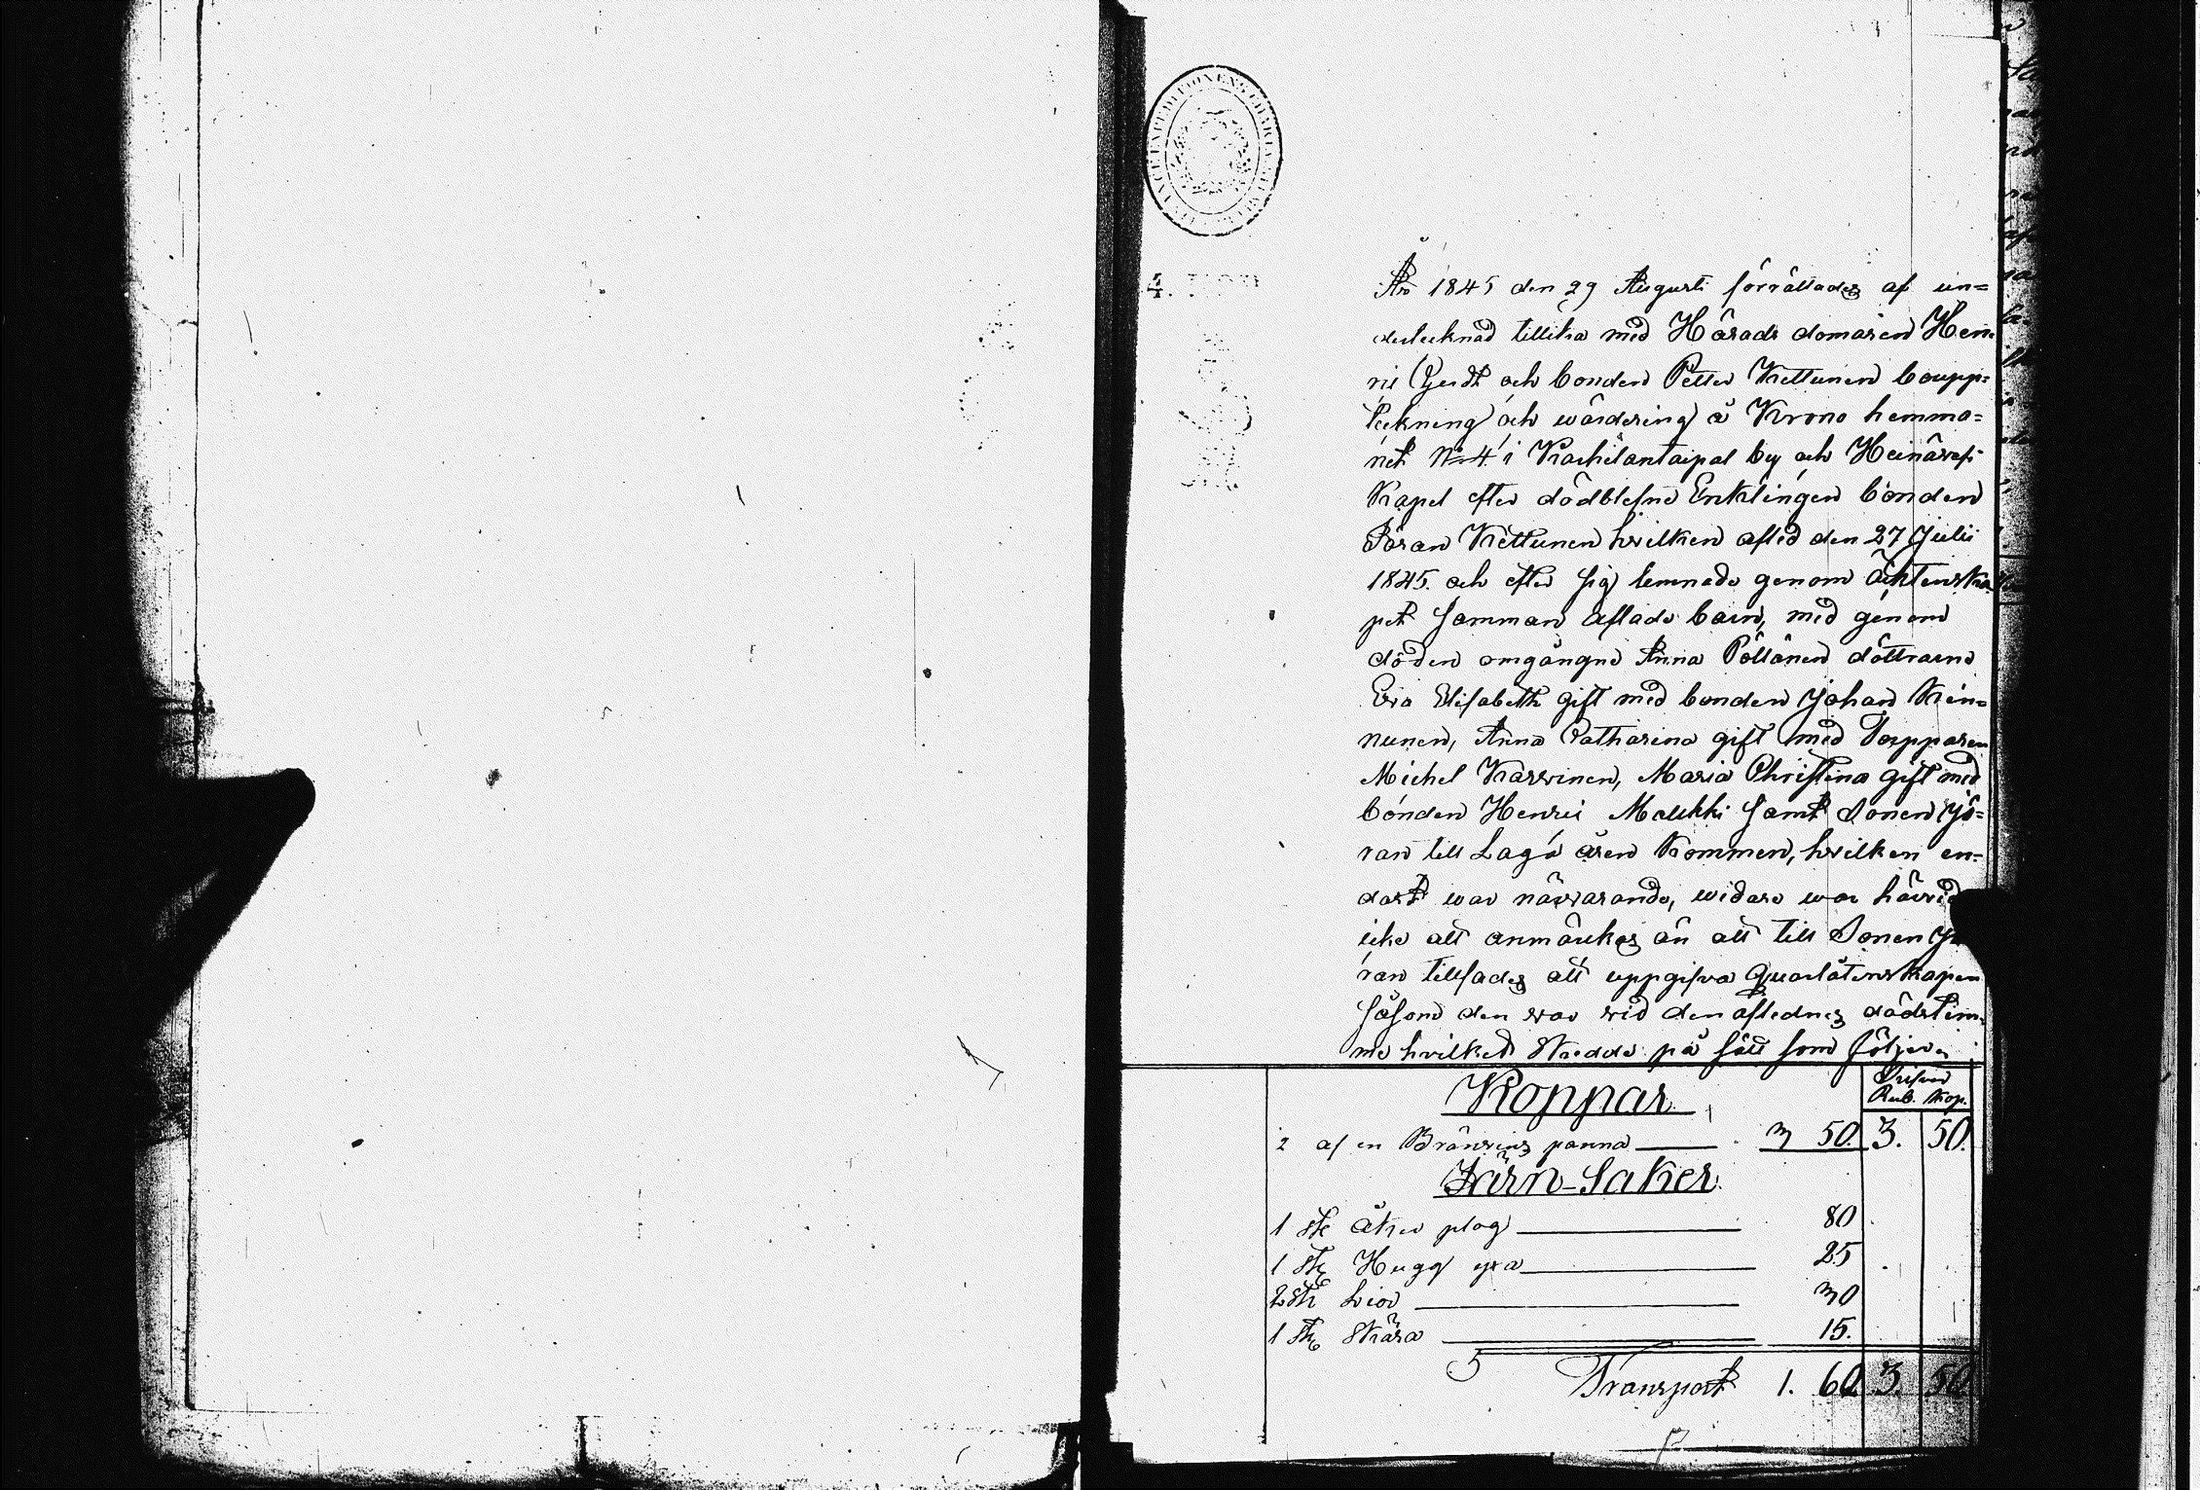 År 1845 den 29 Augusti förrättades af un=
dertecknad tillika med Härads domaren Hen
ric och bonden Petter Kettunen boupp=
teckning och wärdering å Krono hemma=
net No 4 i by och Heinäwesi
Kapel efter dödblefne Enklingen bonden
Jöran Kettunen hvilken afled den 27 Julii
1845. och efter sig lemnade genom äktenska
pet samman aflade barn, med genom
döden omgångne Anna Pöllänen döttrarne
Eva Elisabeth gift med bonden Johan Kin=
nunen, Anna Catharina gift med Torpparen
Michel Karvinen, Maria Christina gift med
bonden Henric Malkki samt Sonen Jö=
ran till Laga åren kommen, hvilken en=
dast war närvarande, widare war härvid
icke att anmärkas än att till Sonen Jö
ran tillsades att uppgifva Quarlåtenskapen
såsom den var vid den aflednes dödstim=
me hvilket Skedde på sätt som följer
Koppar
Silfver
Rub. Kop.
2 af en Bränvins panna 3 50. 3. 50.
Järn-Saker
1 st åker plog 80
1 st Hugg yxa 25
2 st Liar 30
1 st Skära 15.
Transport 1. 60 3. 50